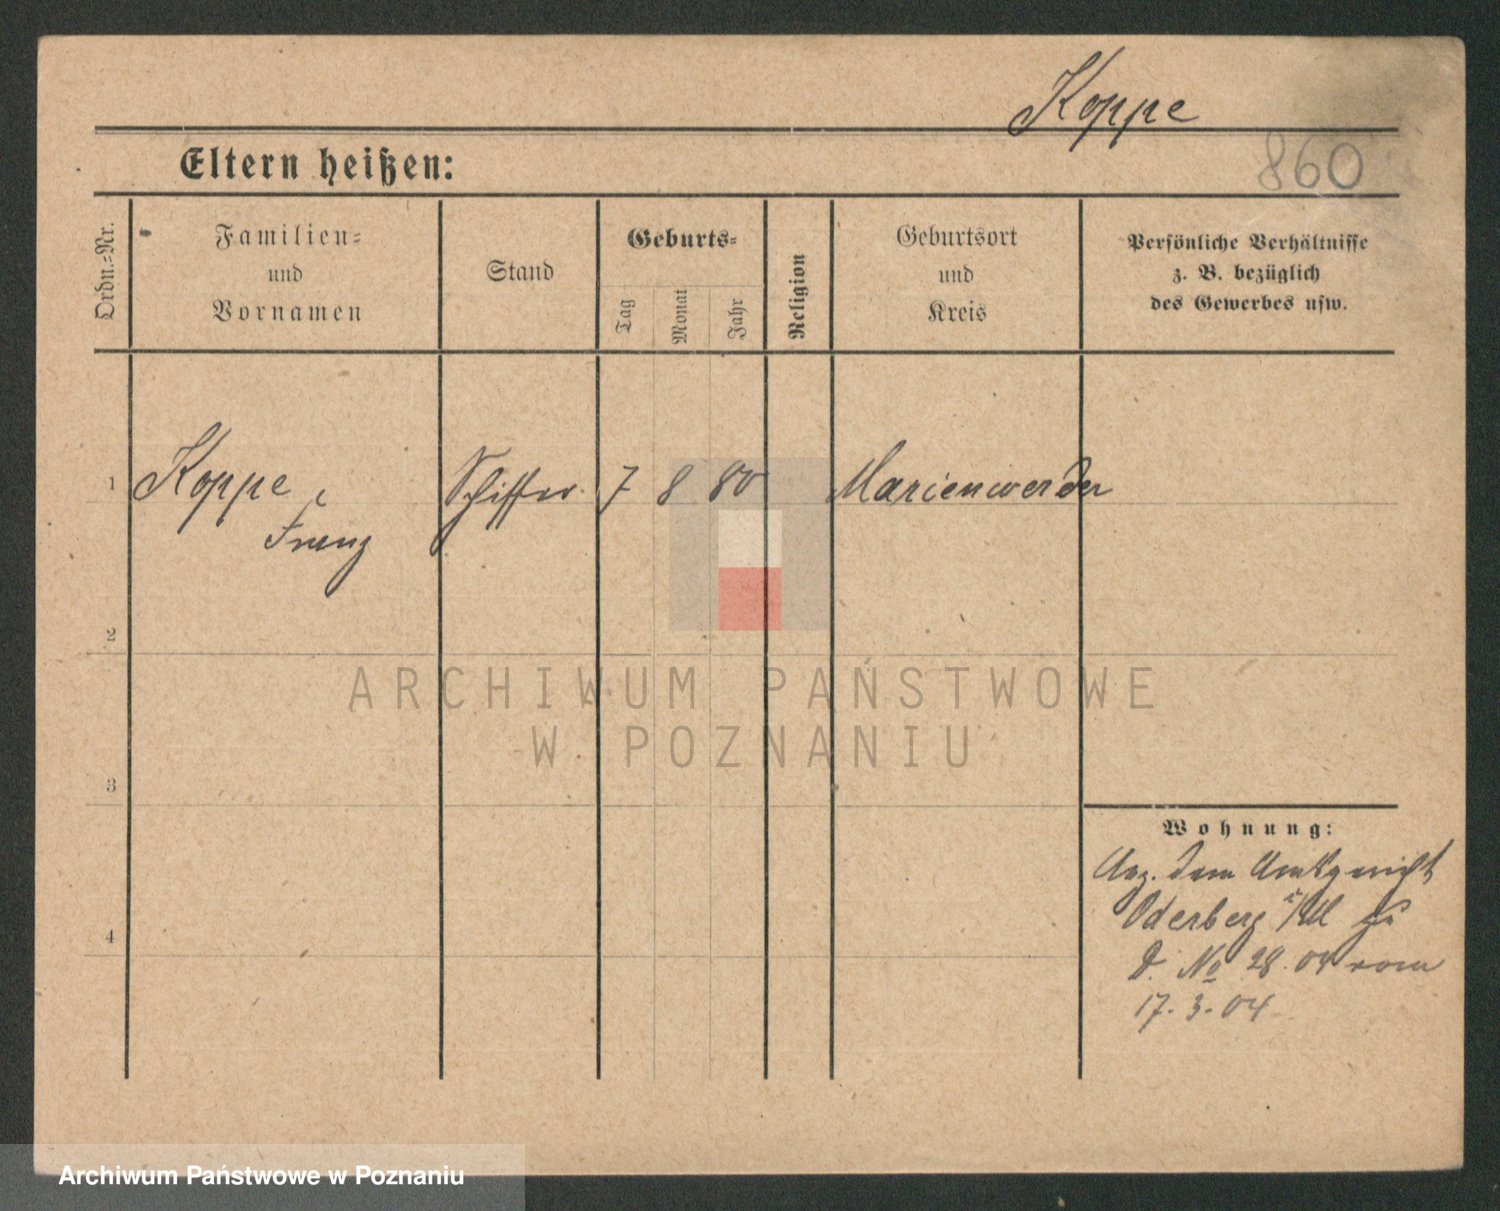 Koppe
860
Eltern heißen:
Ordn.=Nr.
Familien=
und
Vornamen
Stand
Geburts=
Tag
Monat
Jahr
Religion
Geburtsort
und
Kreis
Persönliche Verhältnisse
z. B. bezüglich
des Gewerbes usw.
1
Koppe,
Franz
Schiffer
7
8
80
Marienwerder
2
ARCHIWUM PAŃSTWOWE
W POZNANIU
3
Wohnung:
dem Amtsgericht
Oderberg i/M zu
D. No 28.04 vom
17.3.04
4
Archiwum Państwowe w Poznaniu